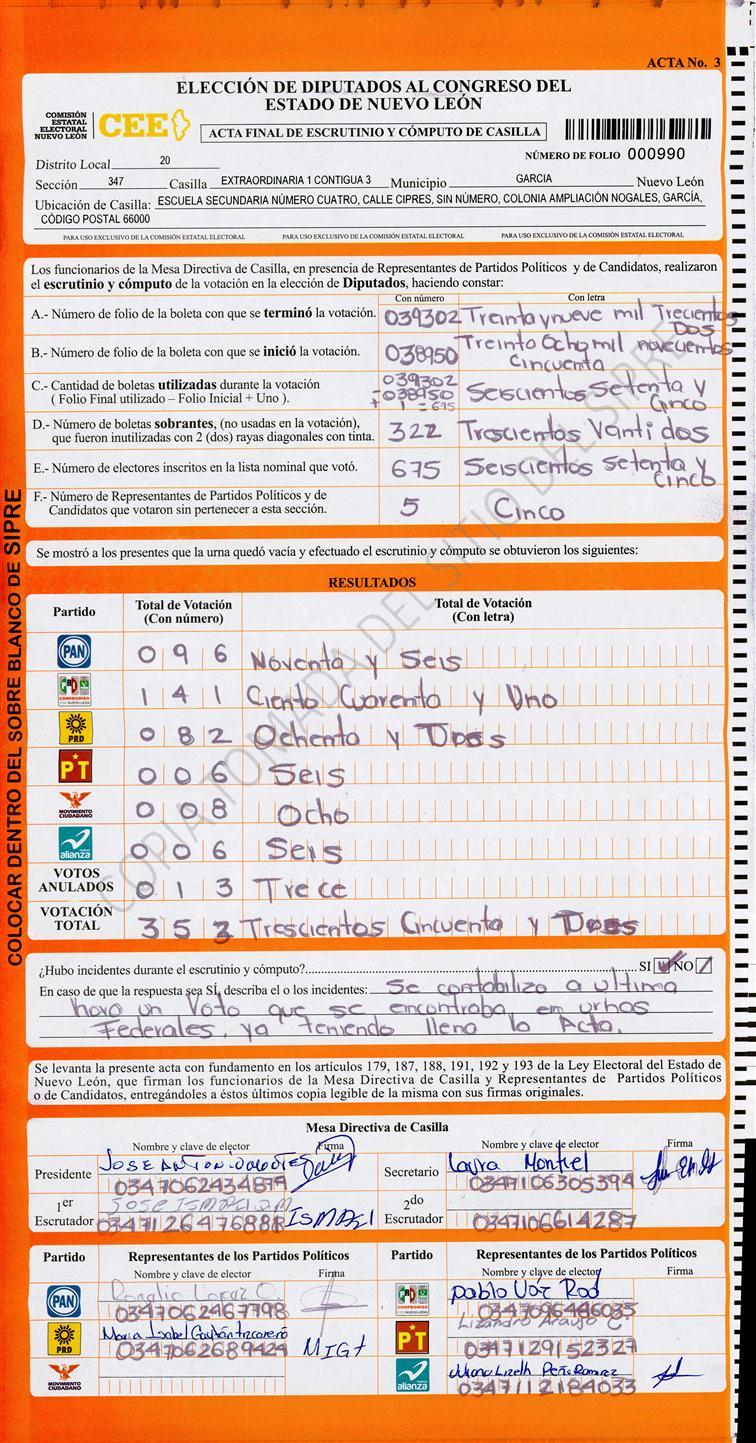 ACTA No. 3
ELECCIÓN DE DIPUTADOS AL CONGRESO DEL
ESTADO DE NUEVO LEÓN
COMISIÓN
ESTATAL
ELECTORAL
NUEVO LEÓN
CEE
ACTA FINAL DE ESCRUTINIO Y CÓMPUTO DE CASILLA
NÚMERO DE FOLIO 000990
Distrito Local 20
Sección 347 Casilla EXTRAORDINARIA 1 CONTIGUA 3 Municipio GARCIA Nuevo León
Ubicación de Casilla: ESCUELA SECUNDARIA NÚMERO CUATRO, CALLE CIPRES, SIN NÚMERO, COLONIA AMPLIACIÓN NOGALES, GARCÍA,
CÓDIGO POSTAL 66000
PARA USO EXCLUSIVO DE LA COMISIÓN ESTATAL ELECTORAL PARA USO EXCLUSIVO DE LA COMISIÓN ESTATAL ELECTORAL PARA USO EXCLUSIVO DE LA COMISIÓN ESTATAL ELECTORAL
Los funcionarios de la Mesa Directiva de Casilla, en presencia de Representantes de Partidos Políticos y de Candidatos, realizaron
el escrutinio y cómputo de la votación en la elección de Diputados, haciendo constar:
Con número Con letra
A.- Número de folio de la boleta con que se terminó la votación. 039302 Treinta y nueve mil Trecientos
Dos
B.- Número de folio de la boleta con que se inició la votación. 038950 Treinta Ocho mil novecientos
Cincuenta
C.- Cantidad de boletas utilizadas durante la votación 039302
( Folio Final utilizado – Folio Inicial + Uno ). -038950 Seiscientos Setenta y
+ 1 = 675 Cinco
D.- Número de boletas sobrantes, (no usadas en la votación),
que fueron inutilizadas con 2 (dos) rayas diagonales con tinta. 322 Trescientos Vantidos
E.- Número de electores inscritos en la lista nominal que votó. 675 Seiscientos Setenta y
Cinco
F.- Número de Representantes de Partidos Políticos y de
Candidatos que votaron sin pertenecer a esta sección. 5 Cinco
Se mostró a los presentes que la urna quedó vacía y efectuado el escrutinio y cómputo se obtuvieron los siguientes:
RESULTADOS
Partido Total de Votación Total de Votación
(Con número) (Con letra)
PAN 096 Noventa y Seis
COMPROMISO 141 Ciento Cuarenta y Uno
PRD 082 Ochenta y Dos
PT 006 Seis
MOVIMIENTO CIUDADANO 008 Ocho
alianza 006 Seis
VOTOS
ANULADOS 013 Trece
VOTACIÓN
TOTAL 352 Trescientos Cincuenta y Dos
¿Hubo incidentes durante el escrutinio y cómputo? SI NO
En caso de que la respuesta sea SÍ, describa el o los incidentes: Se contabilizo a ultima
hora un Voto que se encontraba en urnas
Federales, ya teniendo llena la Acta.
Se levanta la presente acta con fundamento en los artículos 179, 187, 188, 191, 192 y 193 de la Ley Electoral del Estado de
Nuevo León, que firman los funcionarios de la Mesa Directiva de Casilla y Representantes de Partidos Políticos
o de Candidatos, entregándoles a éstos últimos copia legible de la misma con sus firmas originales.
Mesa Directiva de Casilla
Nombre y clave de elector Firma Nombre y clave de elector Firma
Presidente JOSE ANTONIO Secretario Laura Montiel
0347062434879 0347106305394
1er
Escrutador JOSE ISMAEL ISMAEL
0347126476888
2do
Escrutador 0347106614287
Partido Representantes de los Partidos Políticos Partido Representantes de los Partidos Políticos
Nombre y clave de elector Firma Nombre y clave de elector Firma
PAN Rogelio Lopez O. COMPROMISO pablo Vaz Rod
0347062467798 0347096486035
PRD Maria Isabel MIGT PT Lizandro Araujo C
0347062689424 0347129152327
MOVIMIENTO CIUDADANO alianza Juliana Lizeth Peña Ramirez
0347112184033
COLOCAR DENTRO DEL SOBRE BLANCO DE SIPRE
COPIA TOMADA DEL SITIO DEL SIPRE